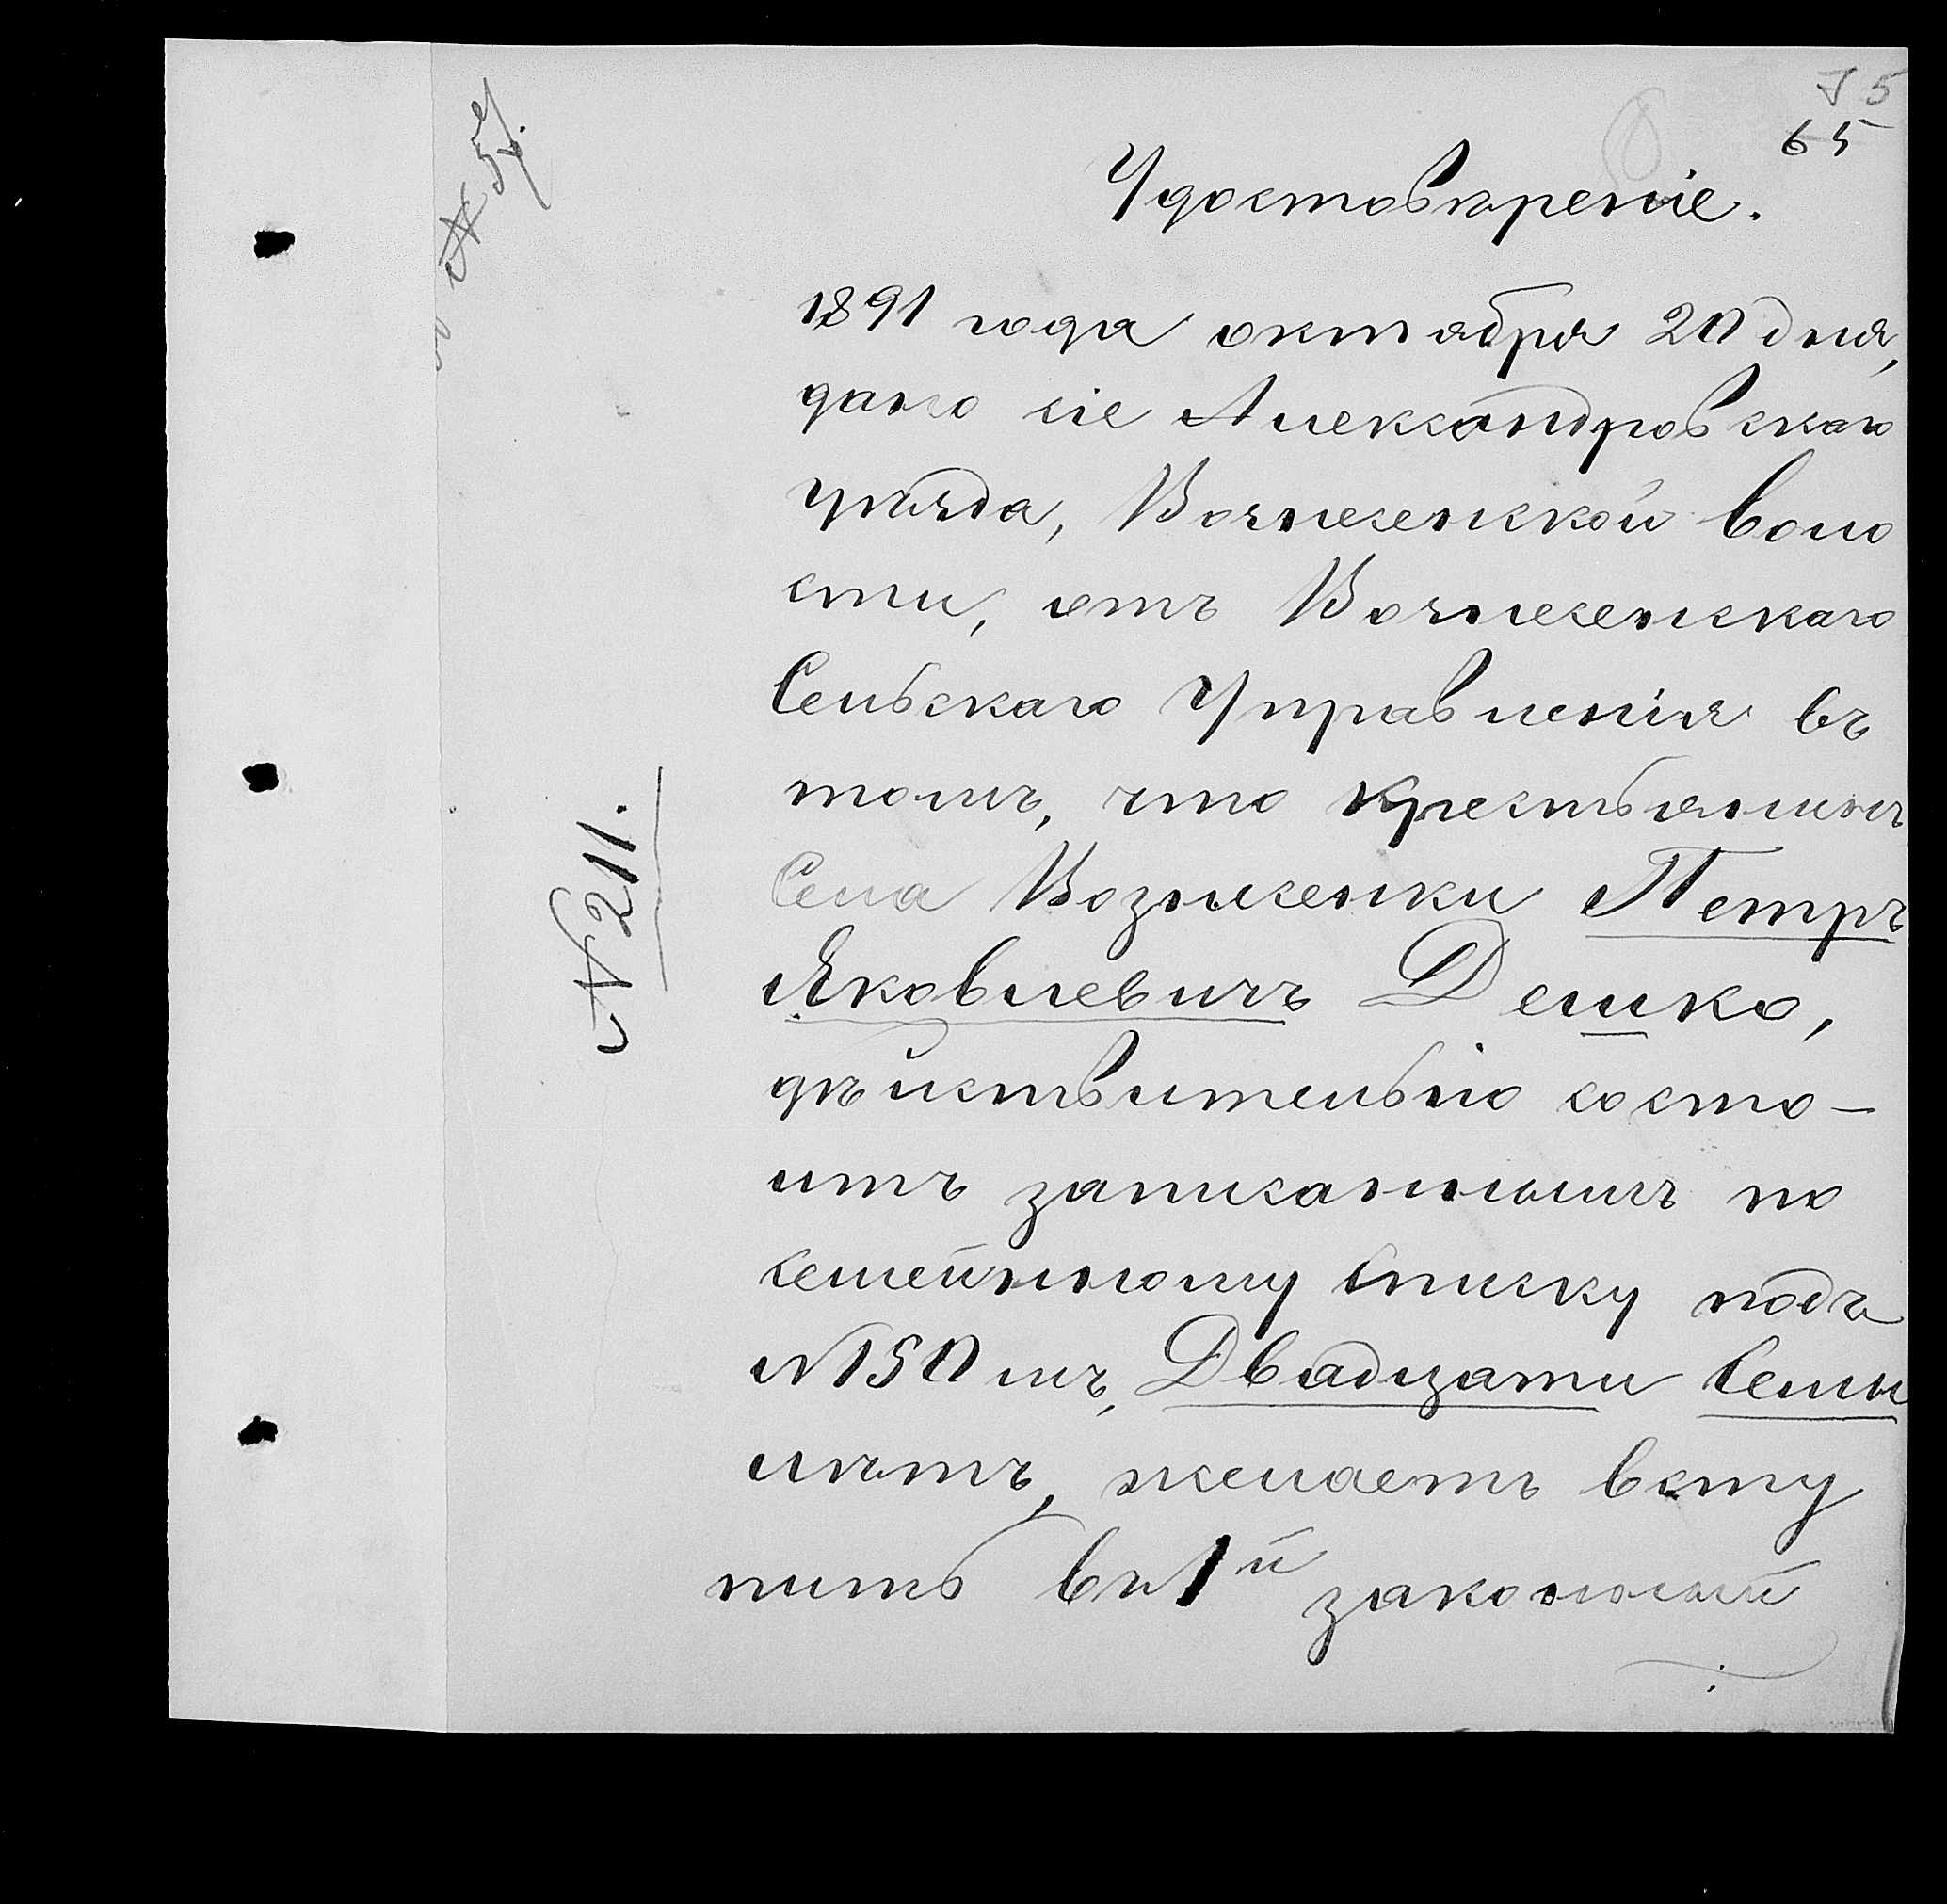 75
65
№ 57.
Удостовѣреніе.
1891 года октября 20 дня,
дано сіе Александровскаго
уѣзда, Вознесенской воло
сти, отъ Вознесенскаго
Сельскаго Управленія въ
томъ, что крестьянинъ
Села Вознесенки Петръ
Яковлевичъ Дешко,
дѣйствительно состо-
итъ записаннымъ по
семейному списку подъ
№ 150 мъ, Двадцати Семи
лѣтъ, желаетъ всту
пить въ 1й законный
№ 211.